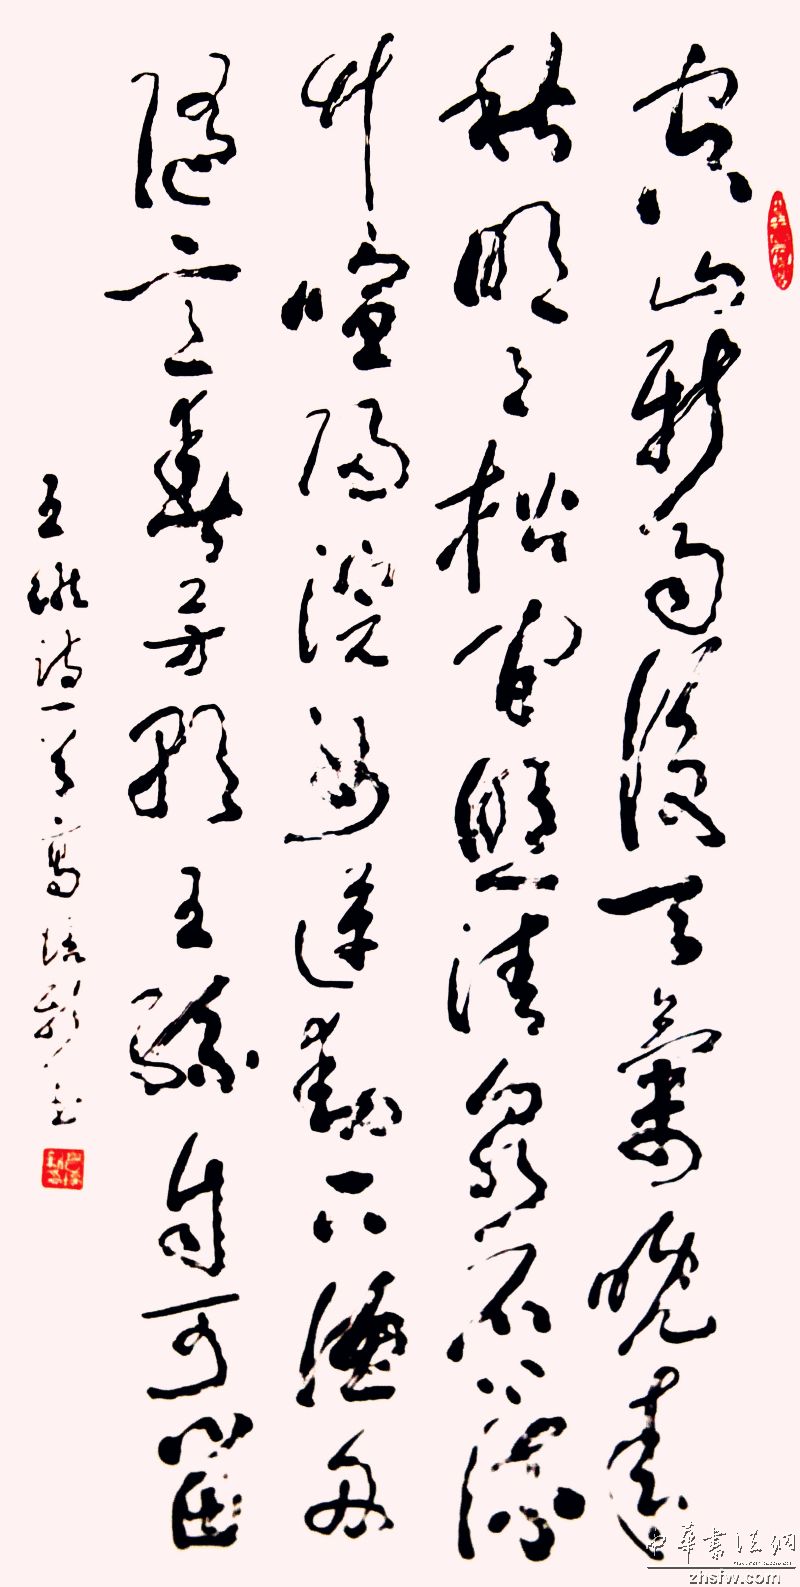 空山新雨後天氣晚來
秋明月松間照清泉石上流
竹喧歸浣女蓮動下漁舟
隨意春芳歇王孫自可留
王維詩一首高培新书
中華書法網
zhsfw.com